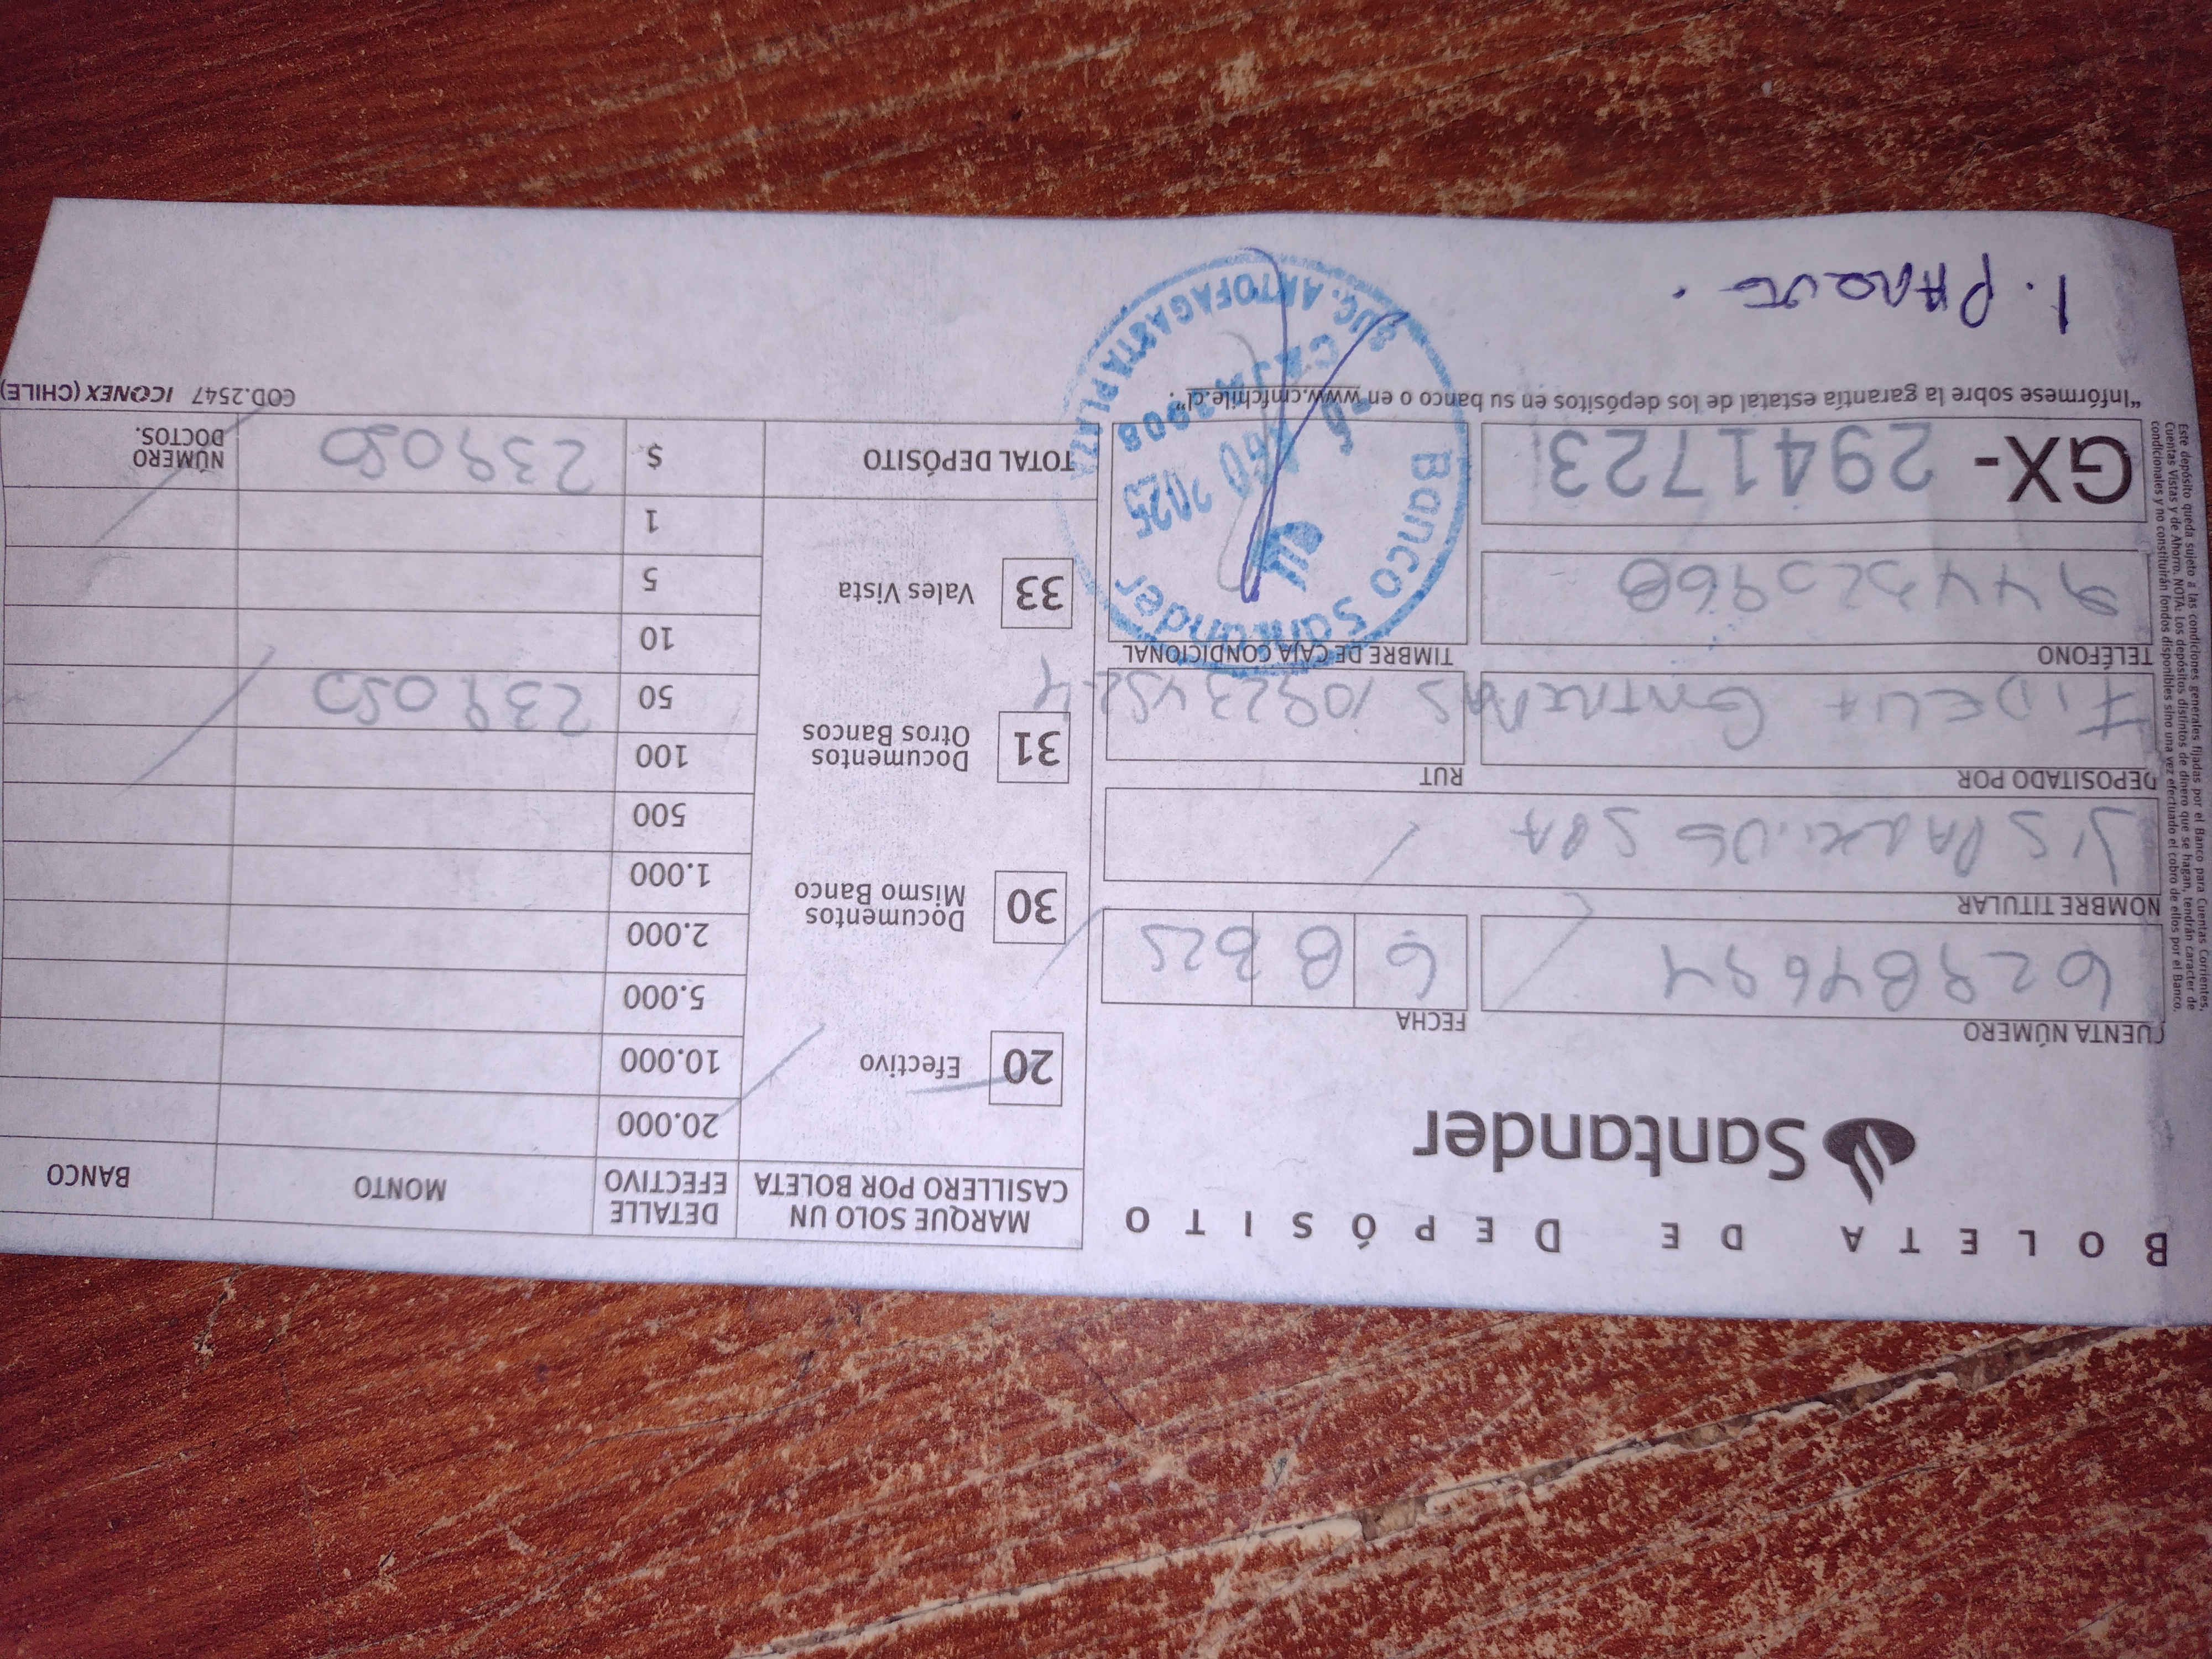 BOLETA DE DEPÓSITO
Santander
CUENTA NÚMERO
FECHA
6 8 25
NOMBRE TITULAR
JIS PARKING SPA
DEPOSITADO POR
RUT
FIDELIA CONTRERAS
TELÉFONO
TIMBRE DE CAJA CONDICIONAL
GX- 2941723
"Infórmese sobre la garantía estatal de los depósitos en su banco o en www.cmfchile.cl".
1. PARQUE.
Banco Santander
AGO 2025
CAJA
SUC. ANTOFAGASTA PLAZA
MARQUE SOLO UN CASILLERO POR BOLETA
DETALLE EFECTIVO
MONTO
BANCO
20 Efectivo
30 Documentos Mismo Banco
31 Documentos Otros Bancos
33 Vales Vista
20.000
10.000
5.000
2.000
1.000
500
100
50 239050
10
5
1
TOTAL DEPÓSITO $ 239050
NÚMERO DOCTOS.
COD.2547 ICONEX (CHILE)
Este depósito queda sujeto a las condiciones generales fijadas por el Banco para Cuentas Corrientes,
Cuentas Vistas y de Ahorro. NOTA: Los depósitos distintos de dinero que se hagan, tendrán caracter de
condicionales y no constituirán fondos disponibles sino una vez efectuado el cobro de ellos por el Banco.